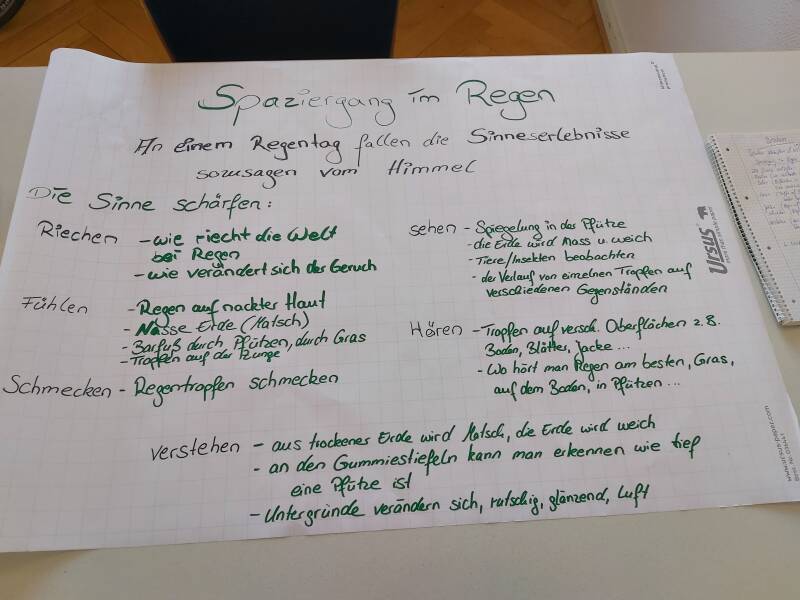 Spaziergang im Regen
An einem Regentag fallen die Sinneserlebnisse
sozusagen vom Himmel
Die Sinne schärfen:
Riechen - wie riecht die Welt
bei Regen
- wie verändert sich der Geruch
Fühlen - Regen auf nackter Haut
- Nasse Erde (Matsch)
- Barfuß durch Pfützen, durch Gras
- Tropfen auf der Zunge
Schmecken - Regentropfen schmecken
sehen - Spiegelung in der Pfütze
- die Erde wird nass u. weich
- Tiere/Insekten beobachten
- der Verlauf von einzelnen Tropfen auf
verschiedenen Gegenständen
Hören - Tropfen auf versch. Oberflächen z.B.
Boden, Blätter, Jacke ...
- Wo hört man Regen am besten, Gras,
auf dem Boden, in Pfützen ...
verstehen - aus trockener Erde wird Matsch, die Erde wird weich
- an den Gummiestiefeln kann man erkennen wie tief
eine Pfütze ist
- Untergründe verändern sich, rutschig, glänzend, Luft
Ursus
www.ursus-paper.com